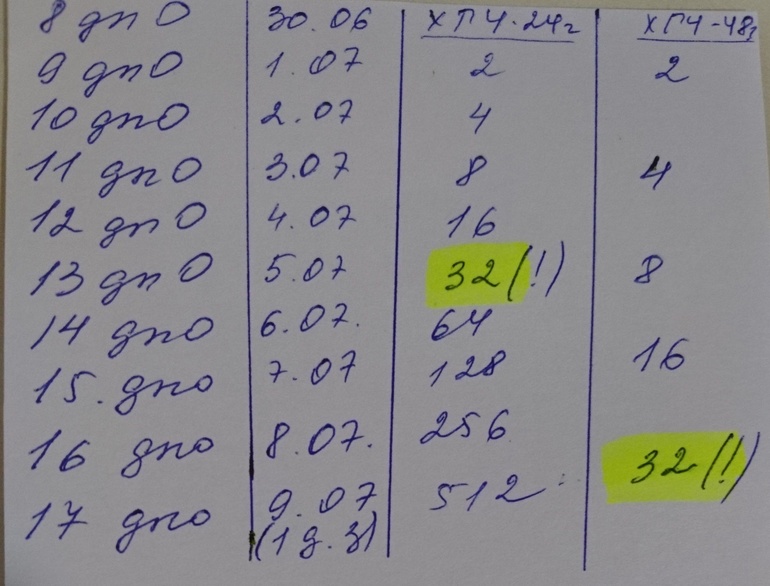 8 дпО 30.06 ХГЧ-24г ХГЧ-48г
9 дпО 1.07 2 2
10 дпО 2.07 4
11 дпО 3.07 8 4
12 дпО 4.07 16
13 дпО 5.07 32(!) 8
14 дпО 6.07. 64
15. дпо 7.07 128 16
16 дпо 8.07. 256 32(!)
17 дпо 9.07 512
(1 д.з)